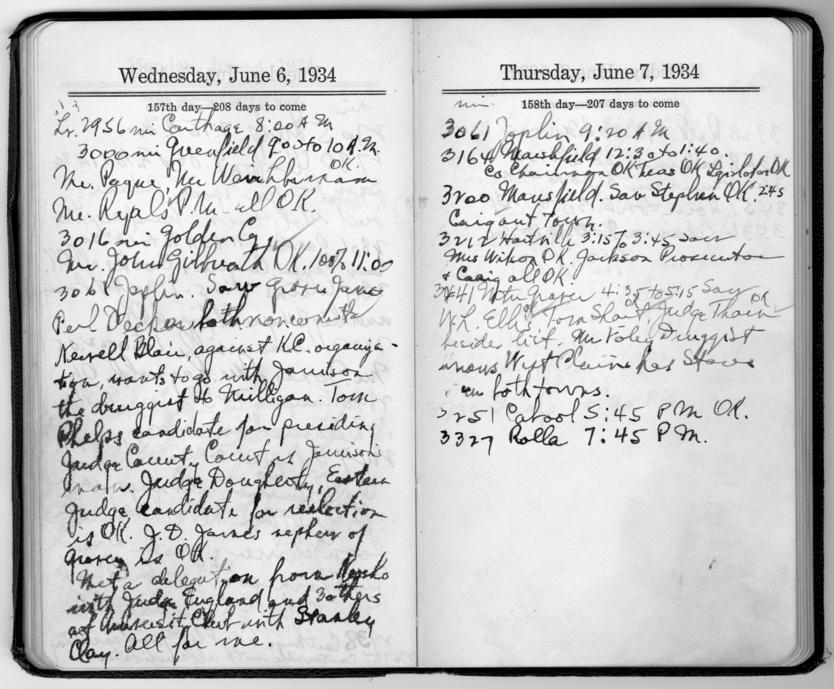 Wednesday, June 6, 1934
157th day—208 days to come
Lv. 2956 mi Carthage 8:00 A M
3000 mi Greenfield 9:00 to 10 A.M.
OK.
Mr. Payne, Mr
Mr. P.M. all OK.
3016 mi Golden Cy
Mr. John OK. 100% 11:00
3061 Joplin. Saw Grover James
Perl Decker both noncomittal
Newell Blair, against K.C. organiza-
tion, wants to go with Jamison
the druggist to Milligan. Tom
Phelps candidate for presiding
Judge County Court is Jamison's
man. Judge Dougherty, Eastern
Judge candidate for reelection
is OK. J.D. James nephew of
Grover is OK.
Met a delegation from Neosho
with Judge England and 3 others
at Club with Stanley
Clay. All for me.
Thursday, June 7, 1934
158th day—207 days to come
mi.
3061 Joplin 9:20 A M
3164 Marshfield 12:30 to 1:40.
Co Chairman OK OK
3200 Mansfield. Saw Stephen OK. 245
Caigant Town.
3212 Hartville 3:15 to 3:45 Saw
Mrs Wilson OK. Jackson Prosecutor
& Craig all OK.
3241 Mtn Grove 4:35 to 5:15 Saw
W.L. Ellis, Tom Judge OK
besides list. Mr Foley Druggist
knows West Plains has Stores
in both towns.
3251 Cabool 5:45 P M OK.
3327 Rolla 7:45 P M.